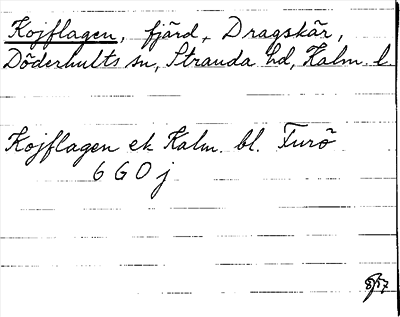 Kojflagen, fjärd, Dragskär,
Döderhults sn, Stranda hd, Kalm. l.
Kojflagen ek Kalm. bl. Furö
6 G 0 j